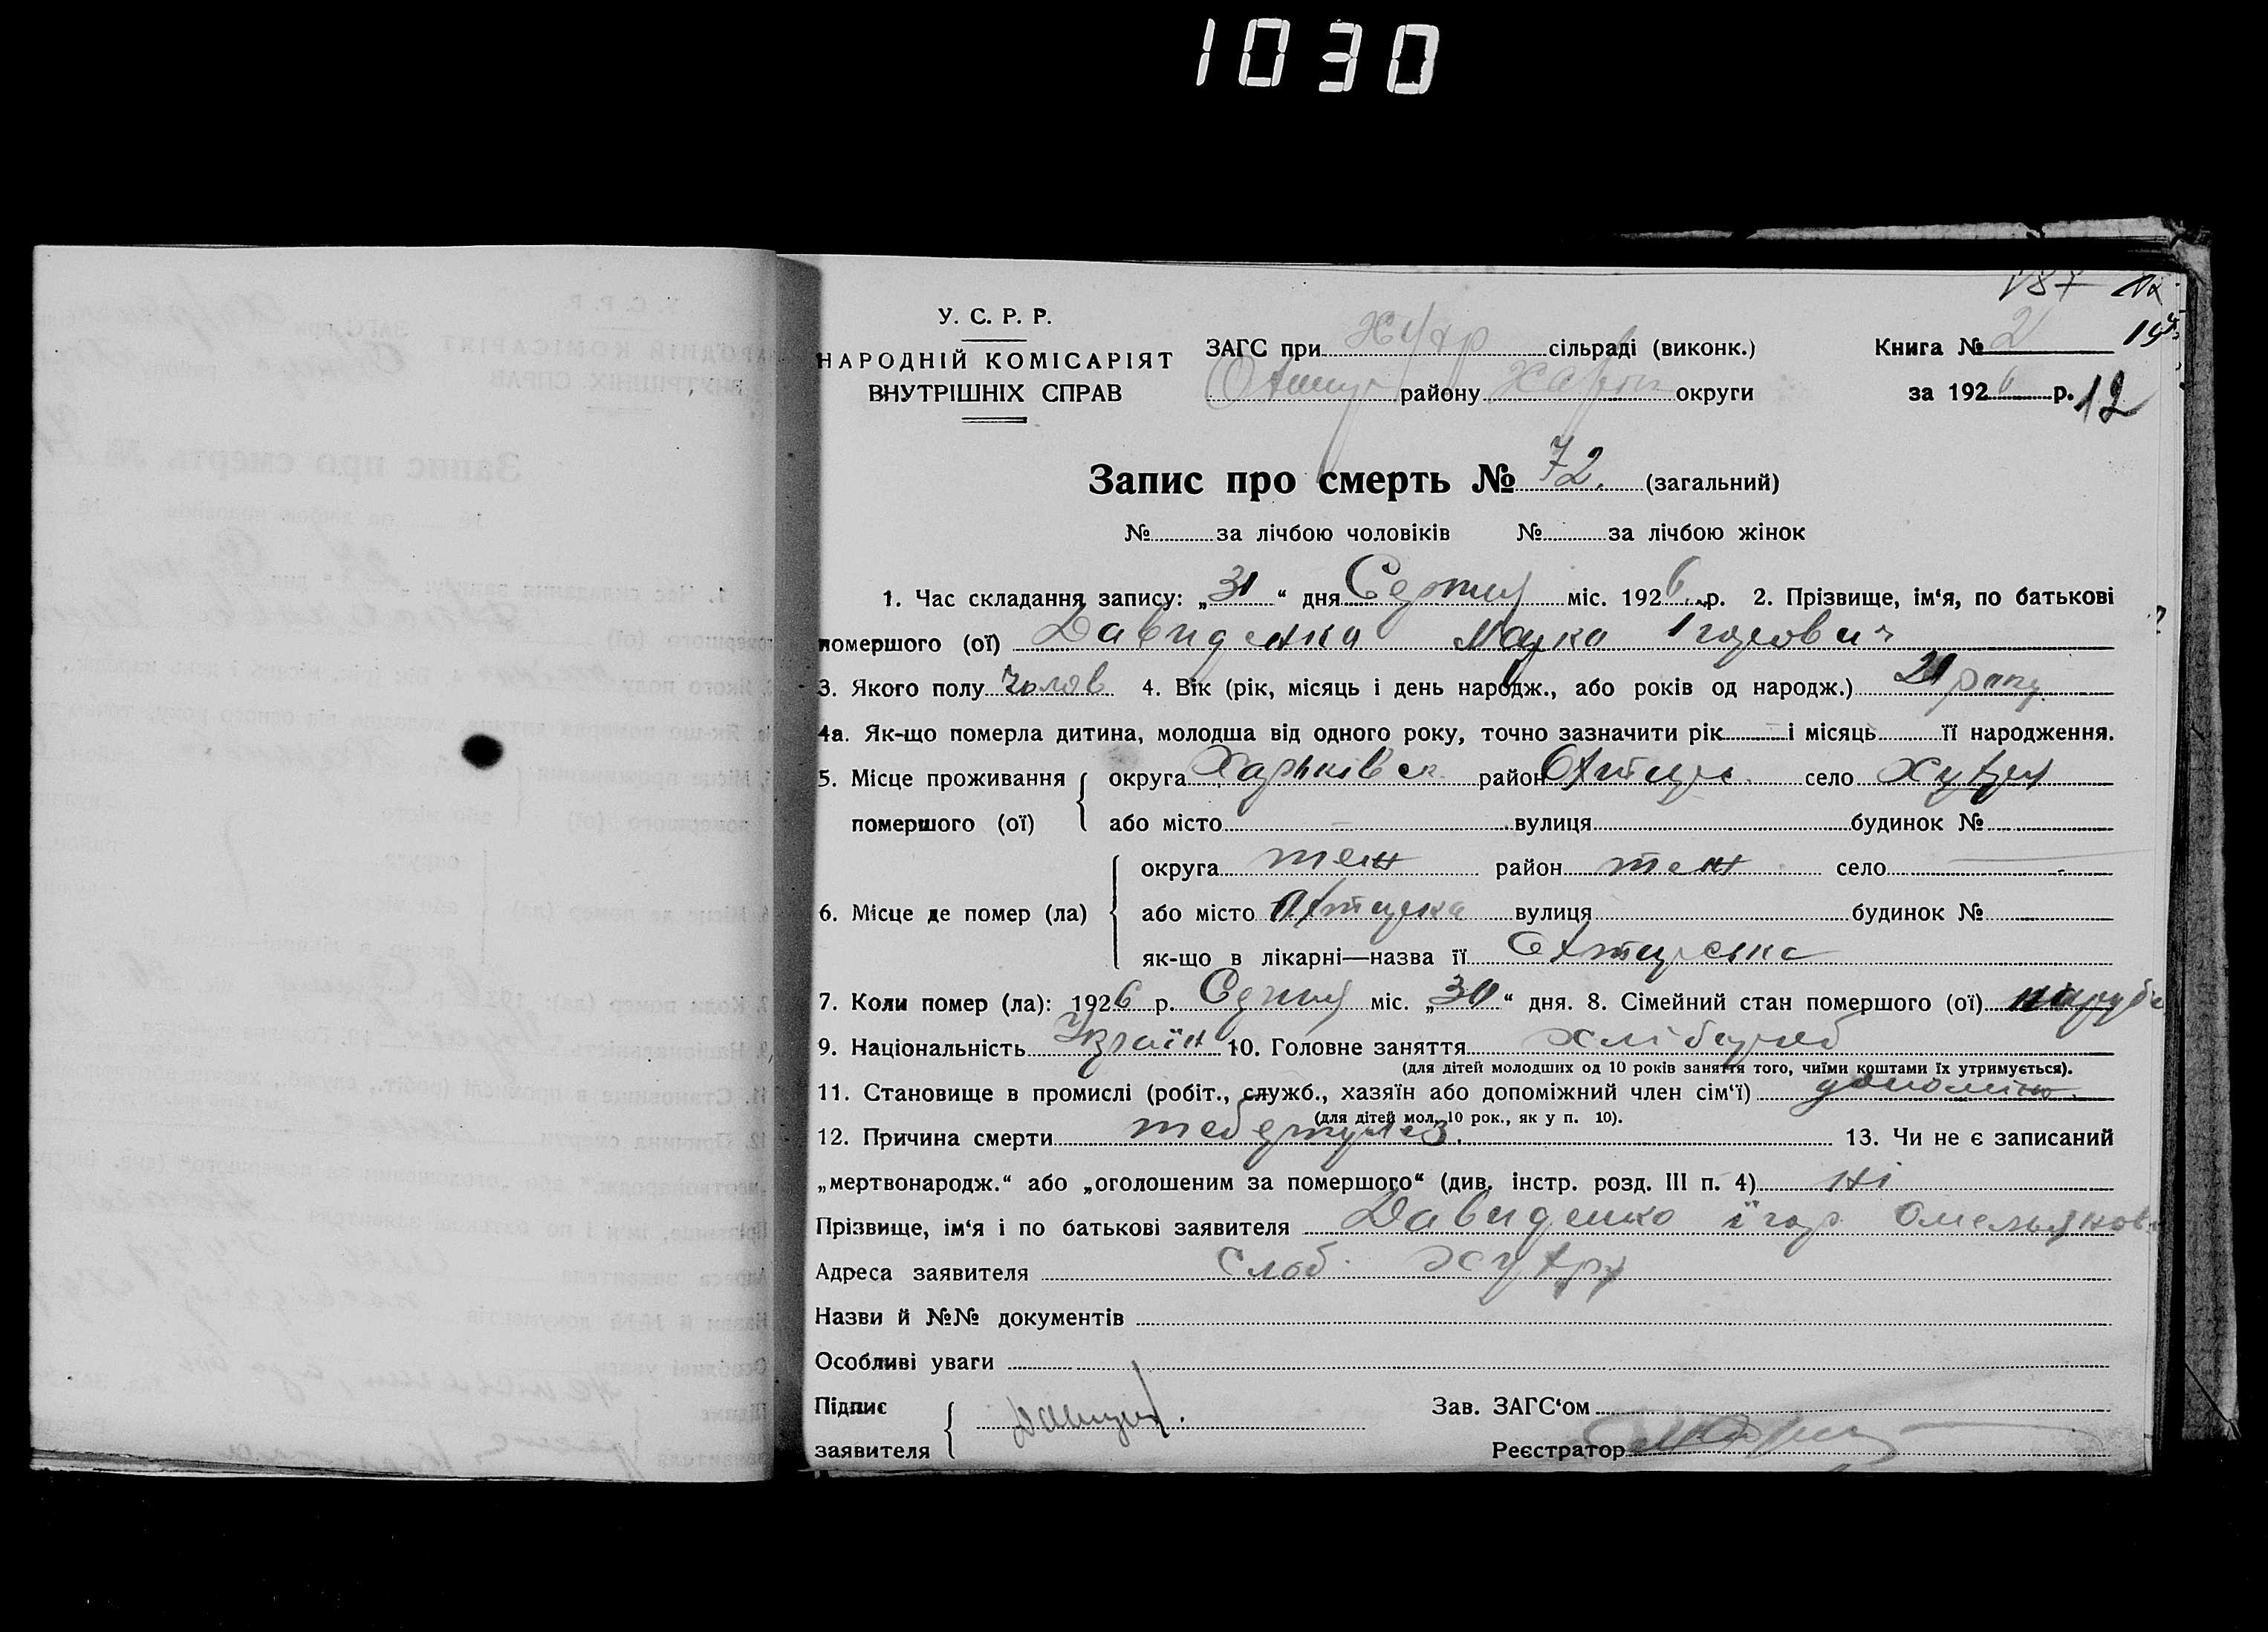 1030
187 12
У. С. Р. Р.
НАРОДНІЙ КОМІСАРІЯТ
ВНУТРІШНІХ СПРАВ
ЗАГС при Хухр сільраді (виконк.)
Охтир району Харьк округи
Книга № 2
за 1926 р. 12
Запис про смерть № 72. (загальний)
№ за лічбою чоловіків № за лічбою жінок
1. Час складання запису: „31“ дня Серпня міс. 1926 р. 2. Прізвище, ім‘я, по батькові
помершого (ої) Давиденка Ігорович
3. Якого полу Чолов 4. Вік (рік, місяць і день народж., або років од народж.) 21 року
4а. Як-що померла дитина, молодша від одного року, точно зазначити рік і місяць її народження.
5. Місце проживання округа Харьківск район Охтирс. село Хухря
помершого (ої) або місто – вулиця будинок №
округа теж район теж село —
6. Місце де помер (ла) або місто Охтирка вулиця будинок №
як-що в лікарні—назва її Охтирська
7. Коли помер (ла): 1926 р. Серпня міс. „30“ дня. 8. Сімейний стан помершого (ої)
9. Національність Україн 10. Головне заняття хлібороб
(для дітей молодших од 10 років заняття того, чиїми коштами їх утримується).
11. Становище в промислі (робіт., служб., хазяїн або допоміжний член сім‘ї) допоміж
(для дітей мол. 10 рок., як у п. 10).
12. Причина смерти 13. Чи не є записаний
„мертвонародж.“ або „оголошеним за помершого“ (див. інстр. розд. III п. 4) ні
Прізвище, ім‘я і по батькові заявителя Давиденко їгор Омельянов
Адреса заявителя Слоб. Хухря
Назви й №№ документів
Особливі уваги
Підпис
заявителя
Зав. ЗАГС‘ом
Реєстратор